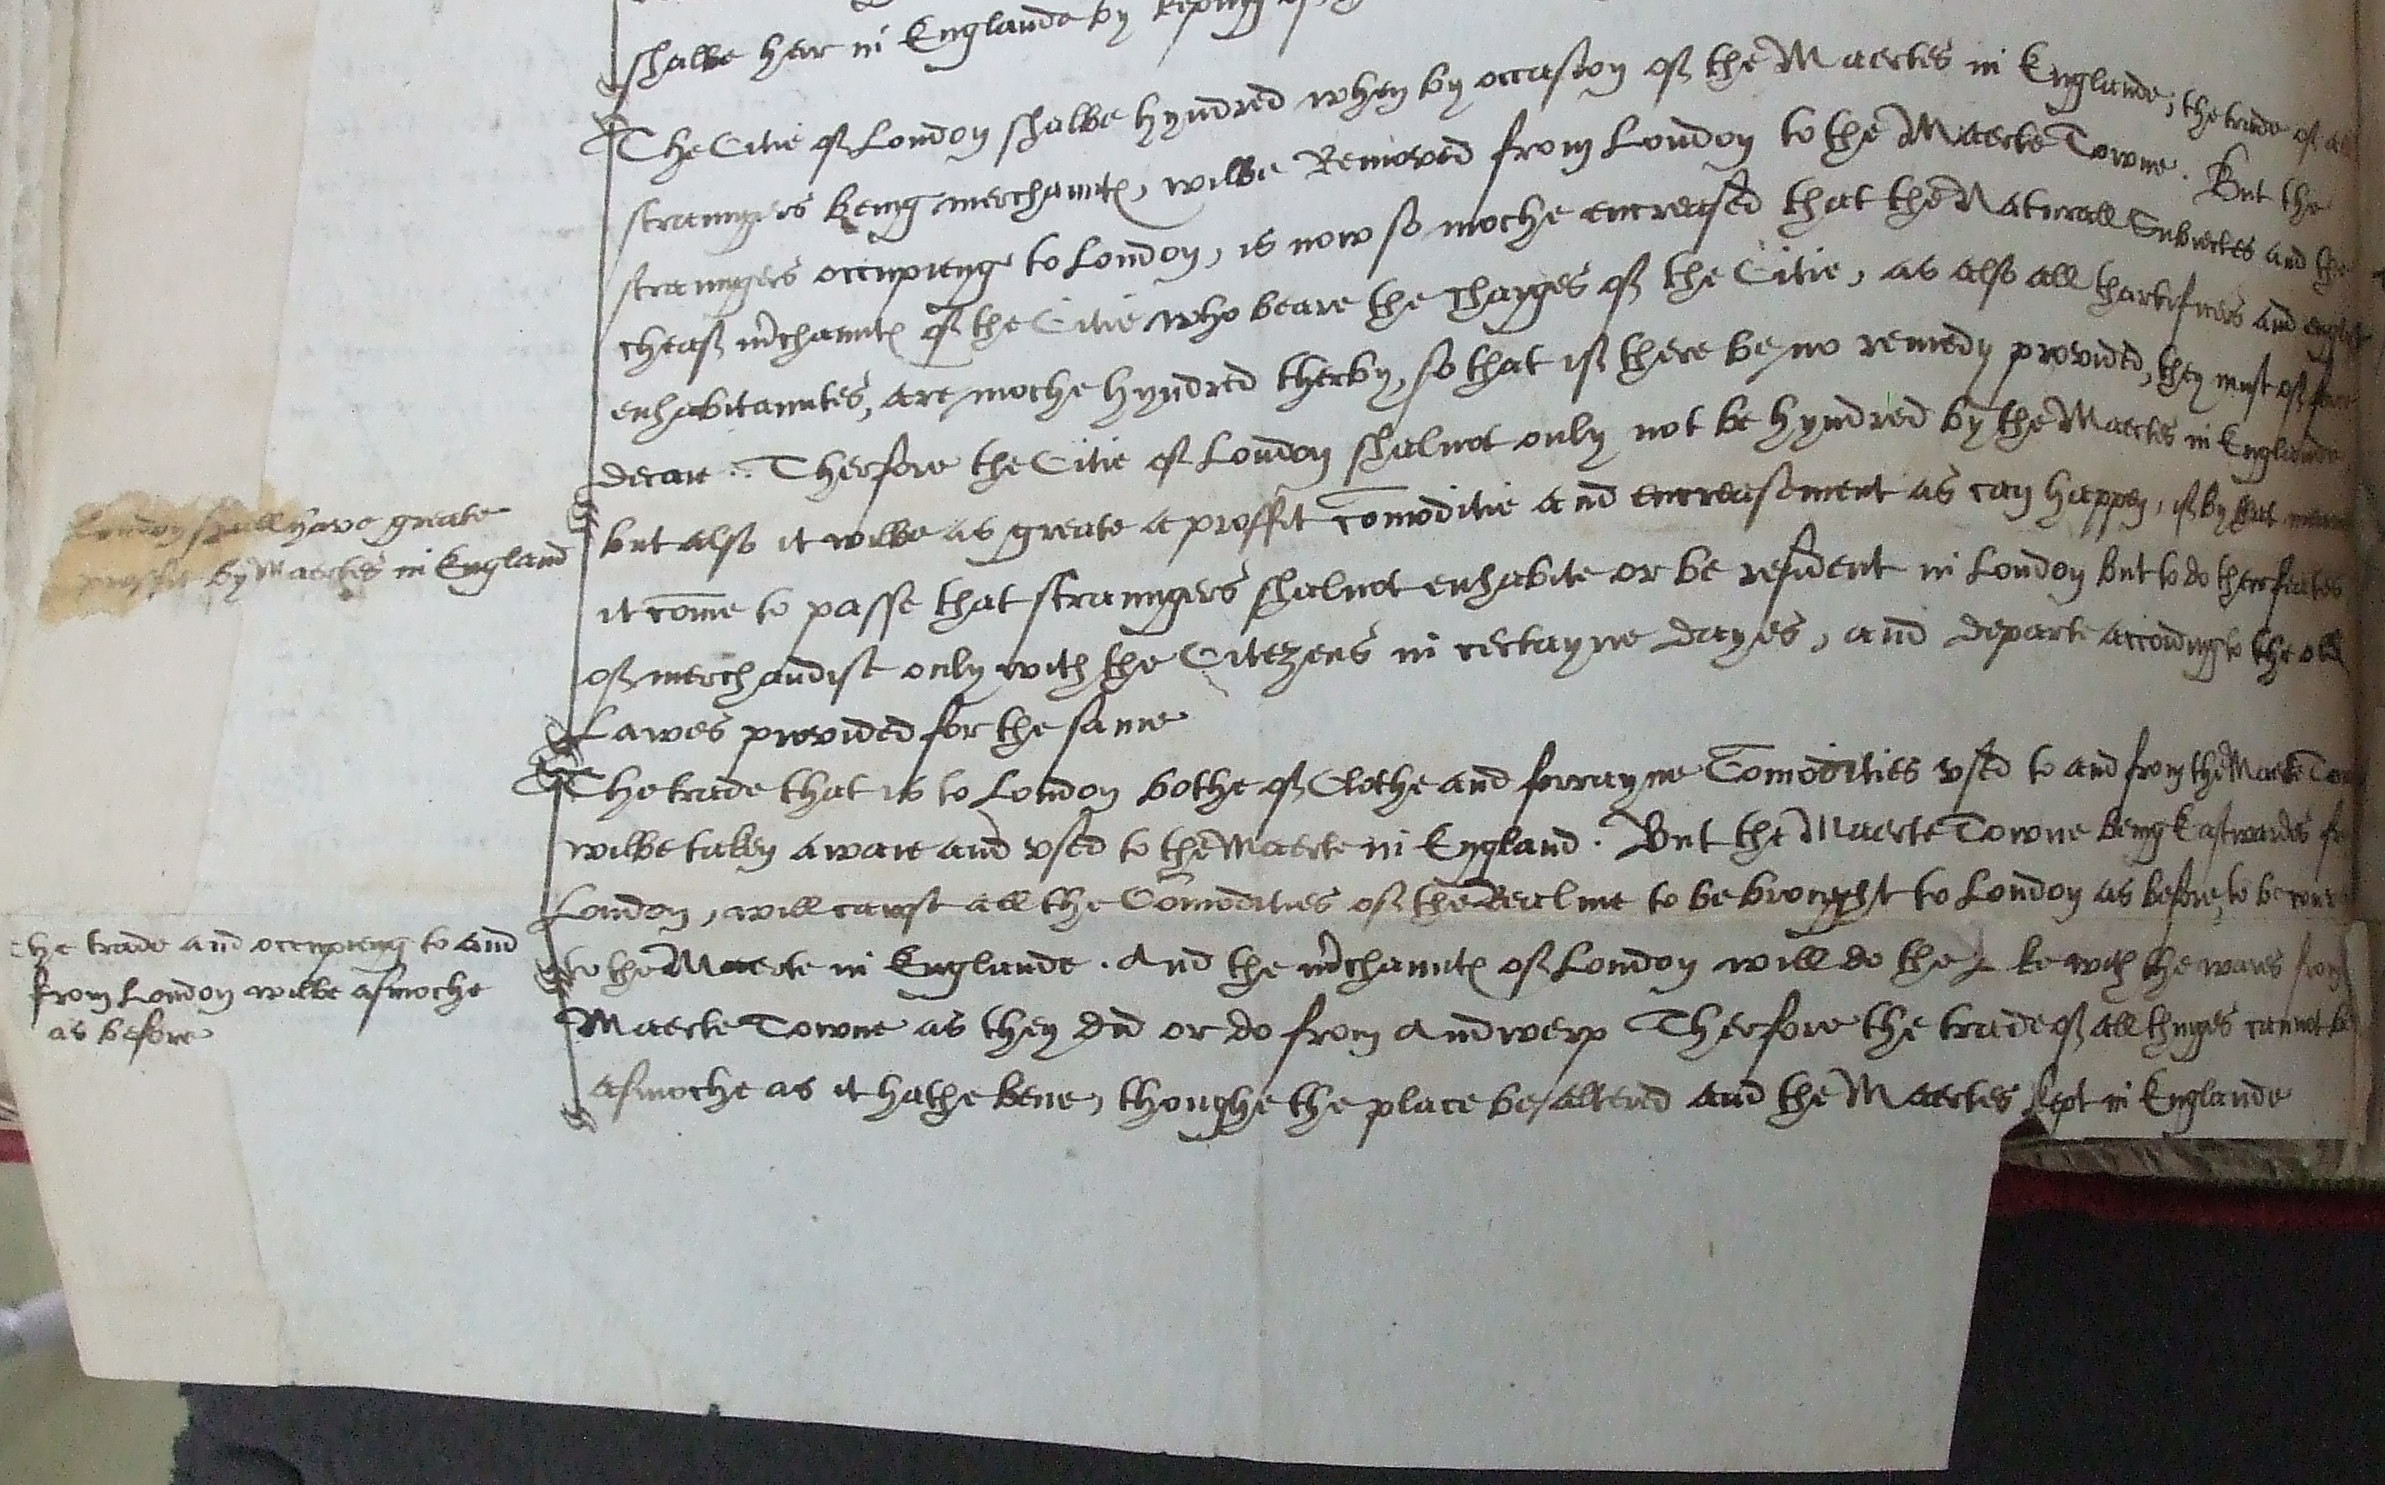 shalbe her in Englande by keping of
The Citie of London shalbe hyndred when by occasion of the Maertes in Englande, the trade of all
straungers being merchauntes, wilbe Removed from London to the Maerte Towne. But the
straungers occupieng to London, is now so moche encreased that the Naturall Subiectes and the
cheaf mrchauntes of the Citie who beare the charges of the Citie, as also all thartificers and
enhabitauntes, are moche hyndred therby, so that if there be no remedy provided, they must of
decaie. Therfore the Citie of London shal not only not be hyndred by the Maertes in Englande
but also it wilbe as greate a proffit comoditie and encreasement as can happen, if by that
it come to passe that straungers shal not enhabite or be resident in London but to do ther feates
of merchandise only with the Citezens in certayne dayes, and departe according to the old
Lawes provided for the same
London shall have greate
proffit by Maertes in England
The trade that is to London bothe of Clothe and forrayne Comodities vsed to and from the Maerte
wilbe taken awaie and vsed to the Maerte in England. But the Maerte Towne being Eastwardes
London, will cause all the Comodities of the Realme to be brought to London as before, to be
to the Maerte in Englande. And the mrchauntes of London will do the like with the wares from
Maerte Towne as they did or do from Andwerp Therfore the trade of all thinges cannot be
asmoche as it hathe bene, thoughe the place be altered and the Maertes kept in Englande
the trade and occupieng to and
from London wilbe asmoche
as before